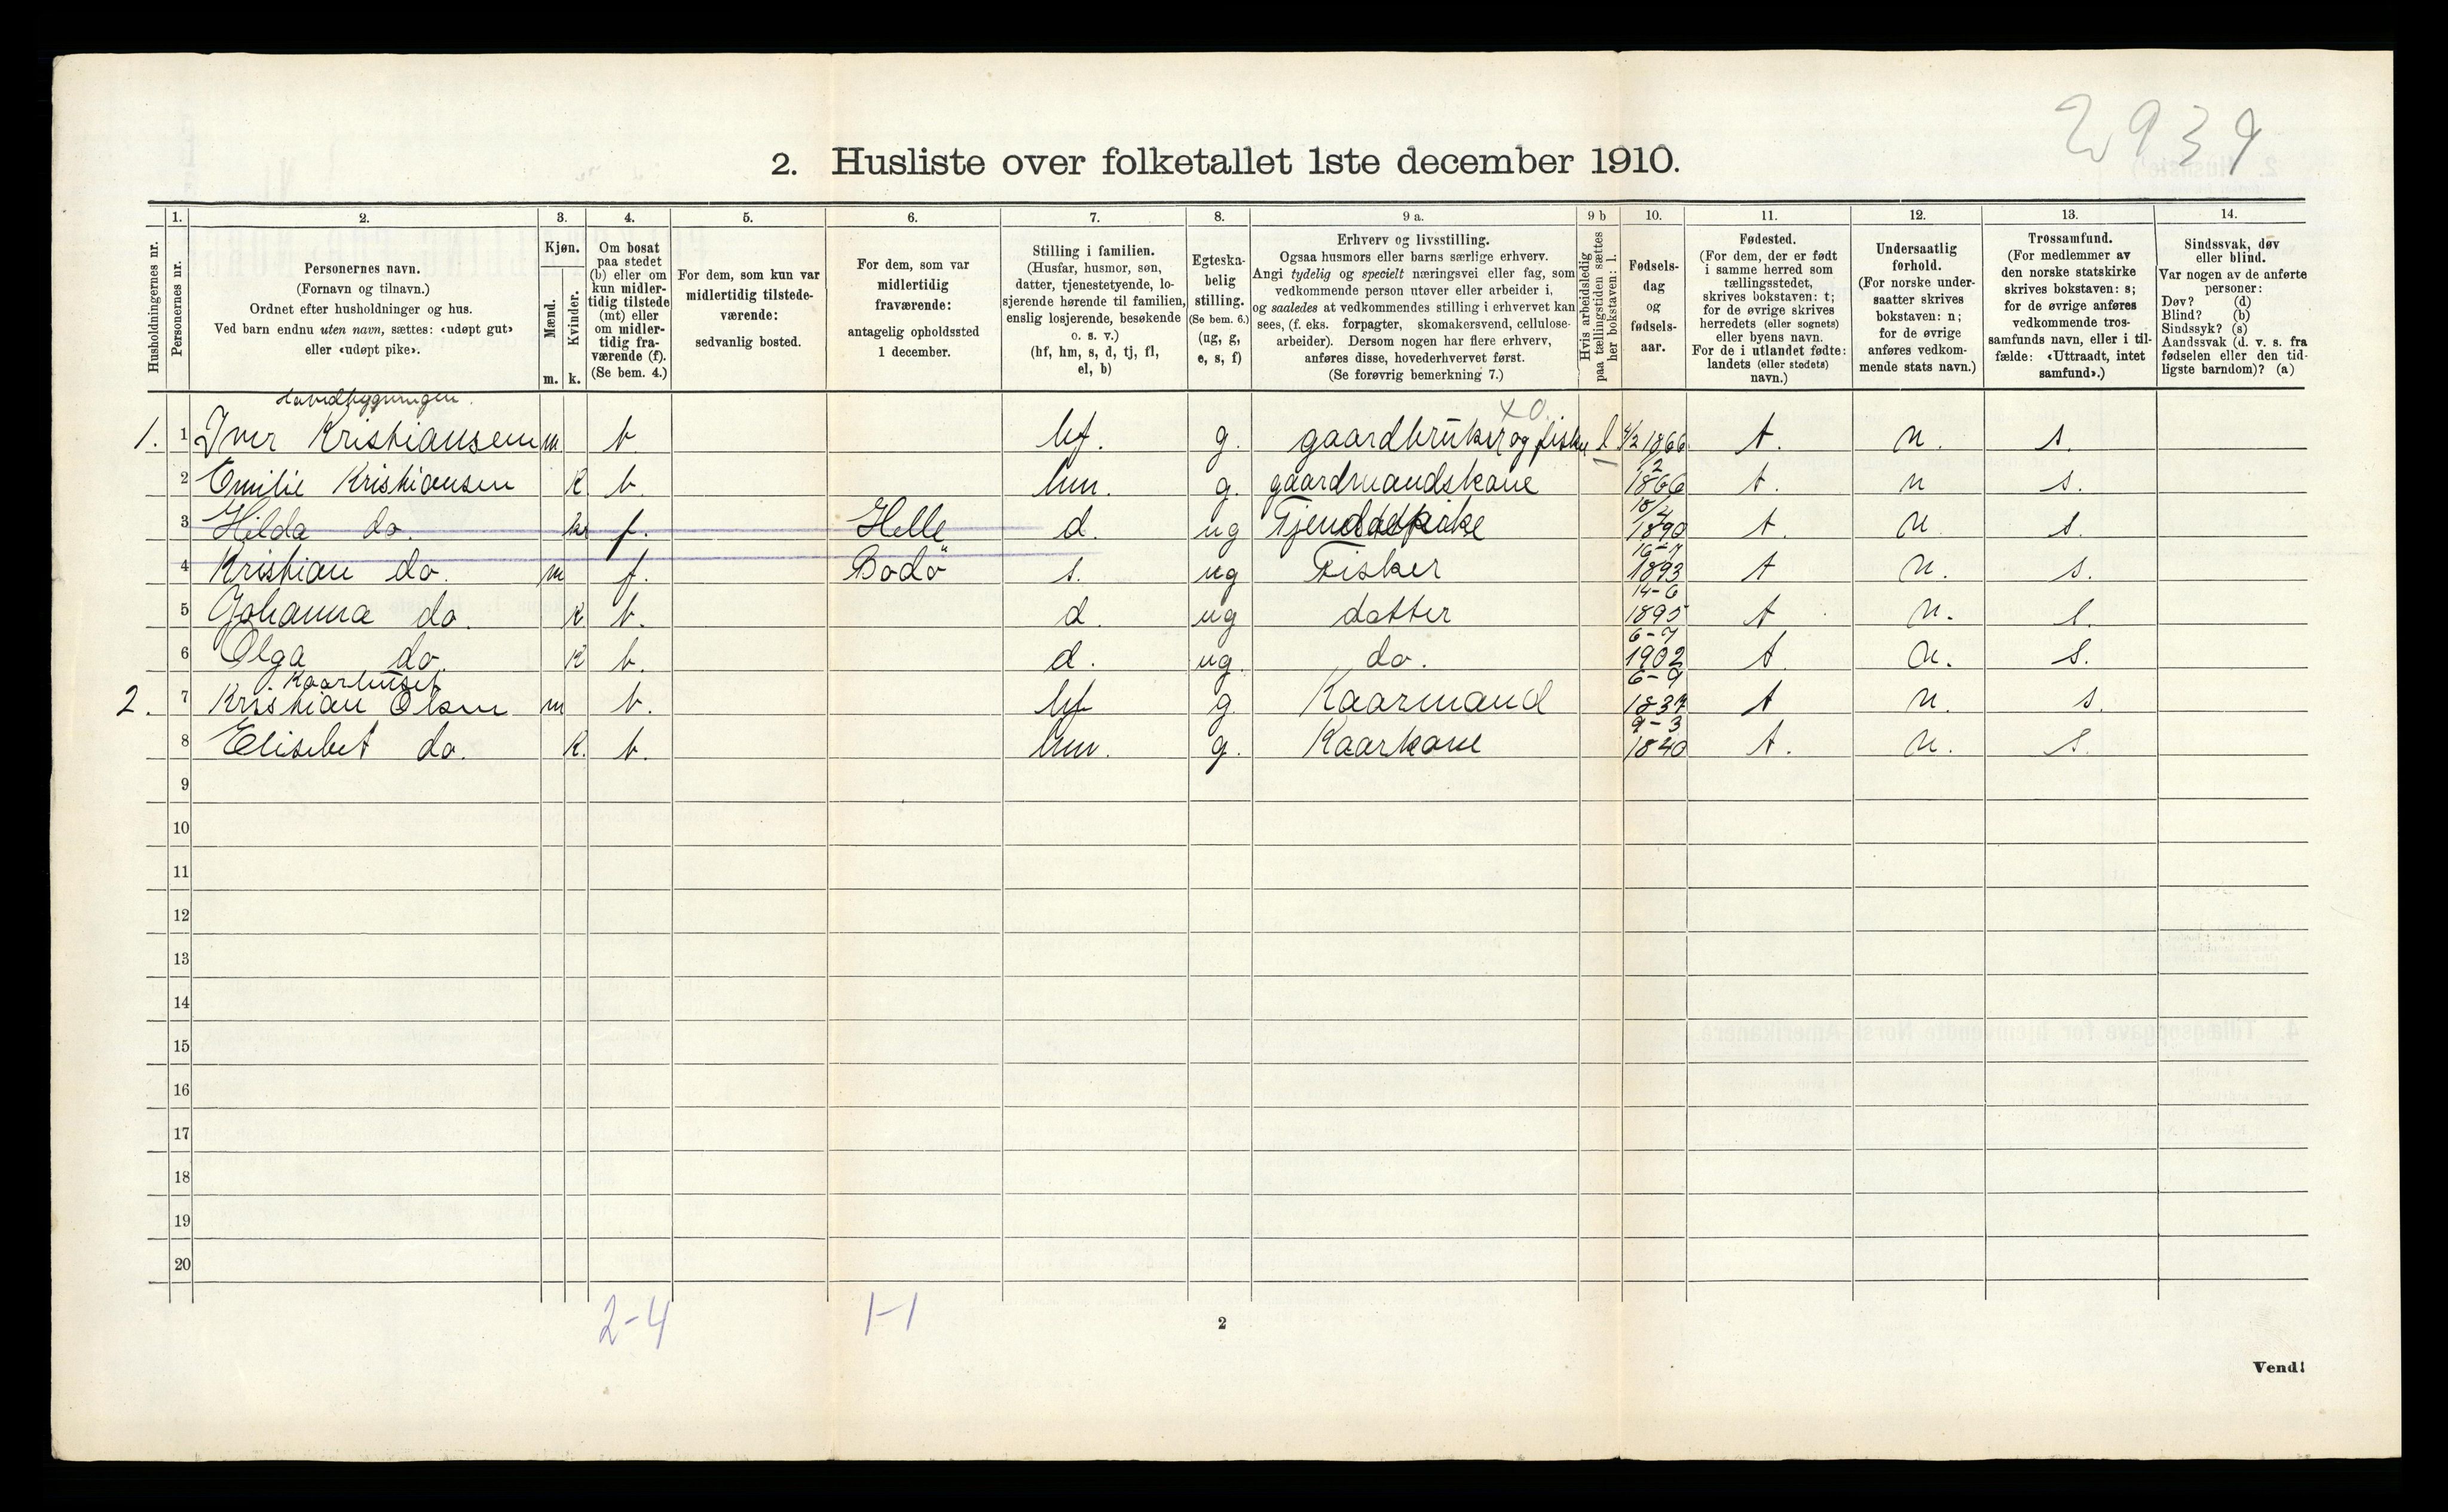 2939
2. Husliste over folketallet 1ste december 1910.
1. 2. 3. 4. 5. 6. 7. 8. 9 a. 9 b 10. 11. 12. 13. 14.
Husholdningernes nr.
Personernes nr.
Personernes navn.
(Fornavn og tilnavn.)
Ordnet efter husholdninger og hus.
Ved barn endnu uten navn, sættes: «udøpt gut»
eller «udøpt pike».
Kjøn.
Mænd.
Kvinder.
m. k.
Om bosat
paa stedet
(b) eller om
kun midler-
tidig tilstede
(mt) eller
om midler-
tidig fra-
værende (f).
(Se bem. 4.)
For dem, som kun var
midlertidig tilstede-
værende:
sedvanlig bosted.
For dem, som var
midlertidig
fraværende:
antagelig opholdssted
1 december.
Stilling i familien.
(Husfar, husmor, søn,
datter, tjenestetyende, lo-
sjerende hørende til familien,
enslig losjerende, besøkende
o. s. v.)
(hf, hm, s, d, tj, fl,
el, b)
Egteska-
belig
stilling.
(Se bem. 6.)
(ug, g,
e, s, f)
Erhverv og livsstilling.
Ogsaa husmors eller barns særlige erhverv.
Angi tydelig og specielt næringsvei eller fag, som
vedkommende person utøver eller arbeider i,
og saaledes at vedkommendes stilling i erhvervet kan
sees, (f. eks. forpagter, skomakersvend, cellulose-
arbeider). Dersom nogen har flere erhverv,
anføres disse, hovederhvervet først.
(Se forøvrig bemerkning 7.)
Hvis arbeidsledig
paa tællingstiden sættes
her bokstaven: l.
Fødsels-
dag
og
fødsels-
aar.
Fødested.
(For dem, der er født
i samme herred som
tællingsstedet,
skrives bokstaven: t;
for de øvrige skrives
herredets (eller sognets)
eller byens navn.
For de i utlandet fødte:
landets (eller stedets)
navn.)
Undersaatlig
forhold.
(For norske under-
saatter skrives
bokstaven: n;
for de øvrige
anføres vedkom-
mende stats navn.)
Trossamfund.
(For medlemmer av
den norske statskirke
skrives bokstaven: s;
for de øvrige anføres
vedkommende tros-
samfunds navn, eller i til-
fælde: «Uttraadt, intet
samfund».)
Sindssvak, døv
eller blind.
Var nogen av de anførte
personer:
Døv? (d)
Blind? (b)
Sindssyk? (s)
Aandssvak (d. v. s. fra
fødselen eller den tid-
ligste barndom)? (a)
Hovedbygningen.
1. 1 Iver Kristiansen m b hf. g. gaardbruker og fisker l 4/2 1866 t. n. s.
2 Emilie Kristiansen K b. hm. g. gaardmandskone 1866 t. n s.
3 Hilda do. k f. Helle d. ug Tjenestepike 1890 t. n s.
4 Kristian do. m f. Bodö s. ug Fisker 1893 t n. s.
5 Johanna do. K b. d. ug datter 14-6 1895 t n. s.
6 Olga do. K b. d. ug. do. 6-7 1902 t. n. s.
Kaarhuset
2. 7 Kristian Olsen m b. hf g. Kaarmand 6-9 1837 t n. s.
8 Elisebet do. K. b. hm. g. Kaarkone 9-3 1840 t. n. s.
9
10
11
12
13
14
15
16
17
18
19
20
2-4 1-1
2
Vend!